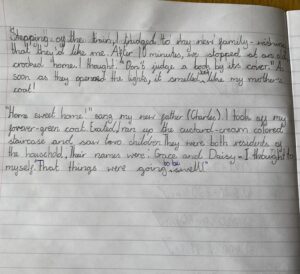 Stepping off the train, I trudged to my new family - wishing
that they'd like me. After 10 minutes, we stopped at an old
crooked home. I thought: "Don't judge a book by its cover." As
soon as they opened the lights, it smelled just like my mother's
coat!
"Home sweet home!" sang my new father (Charles). I took off my
forever-green coat. Excited, ran up the custard-cream colored
staircase and saw two children. They were both residents of
the household, their names were: Grace and Daisy. I thought to
myself "That things were going to be swell!"